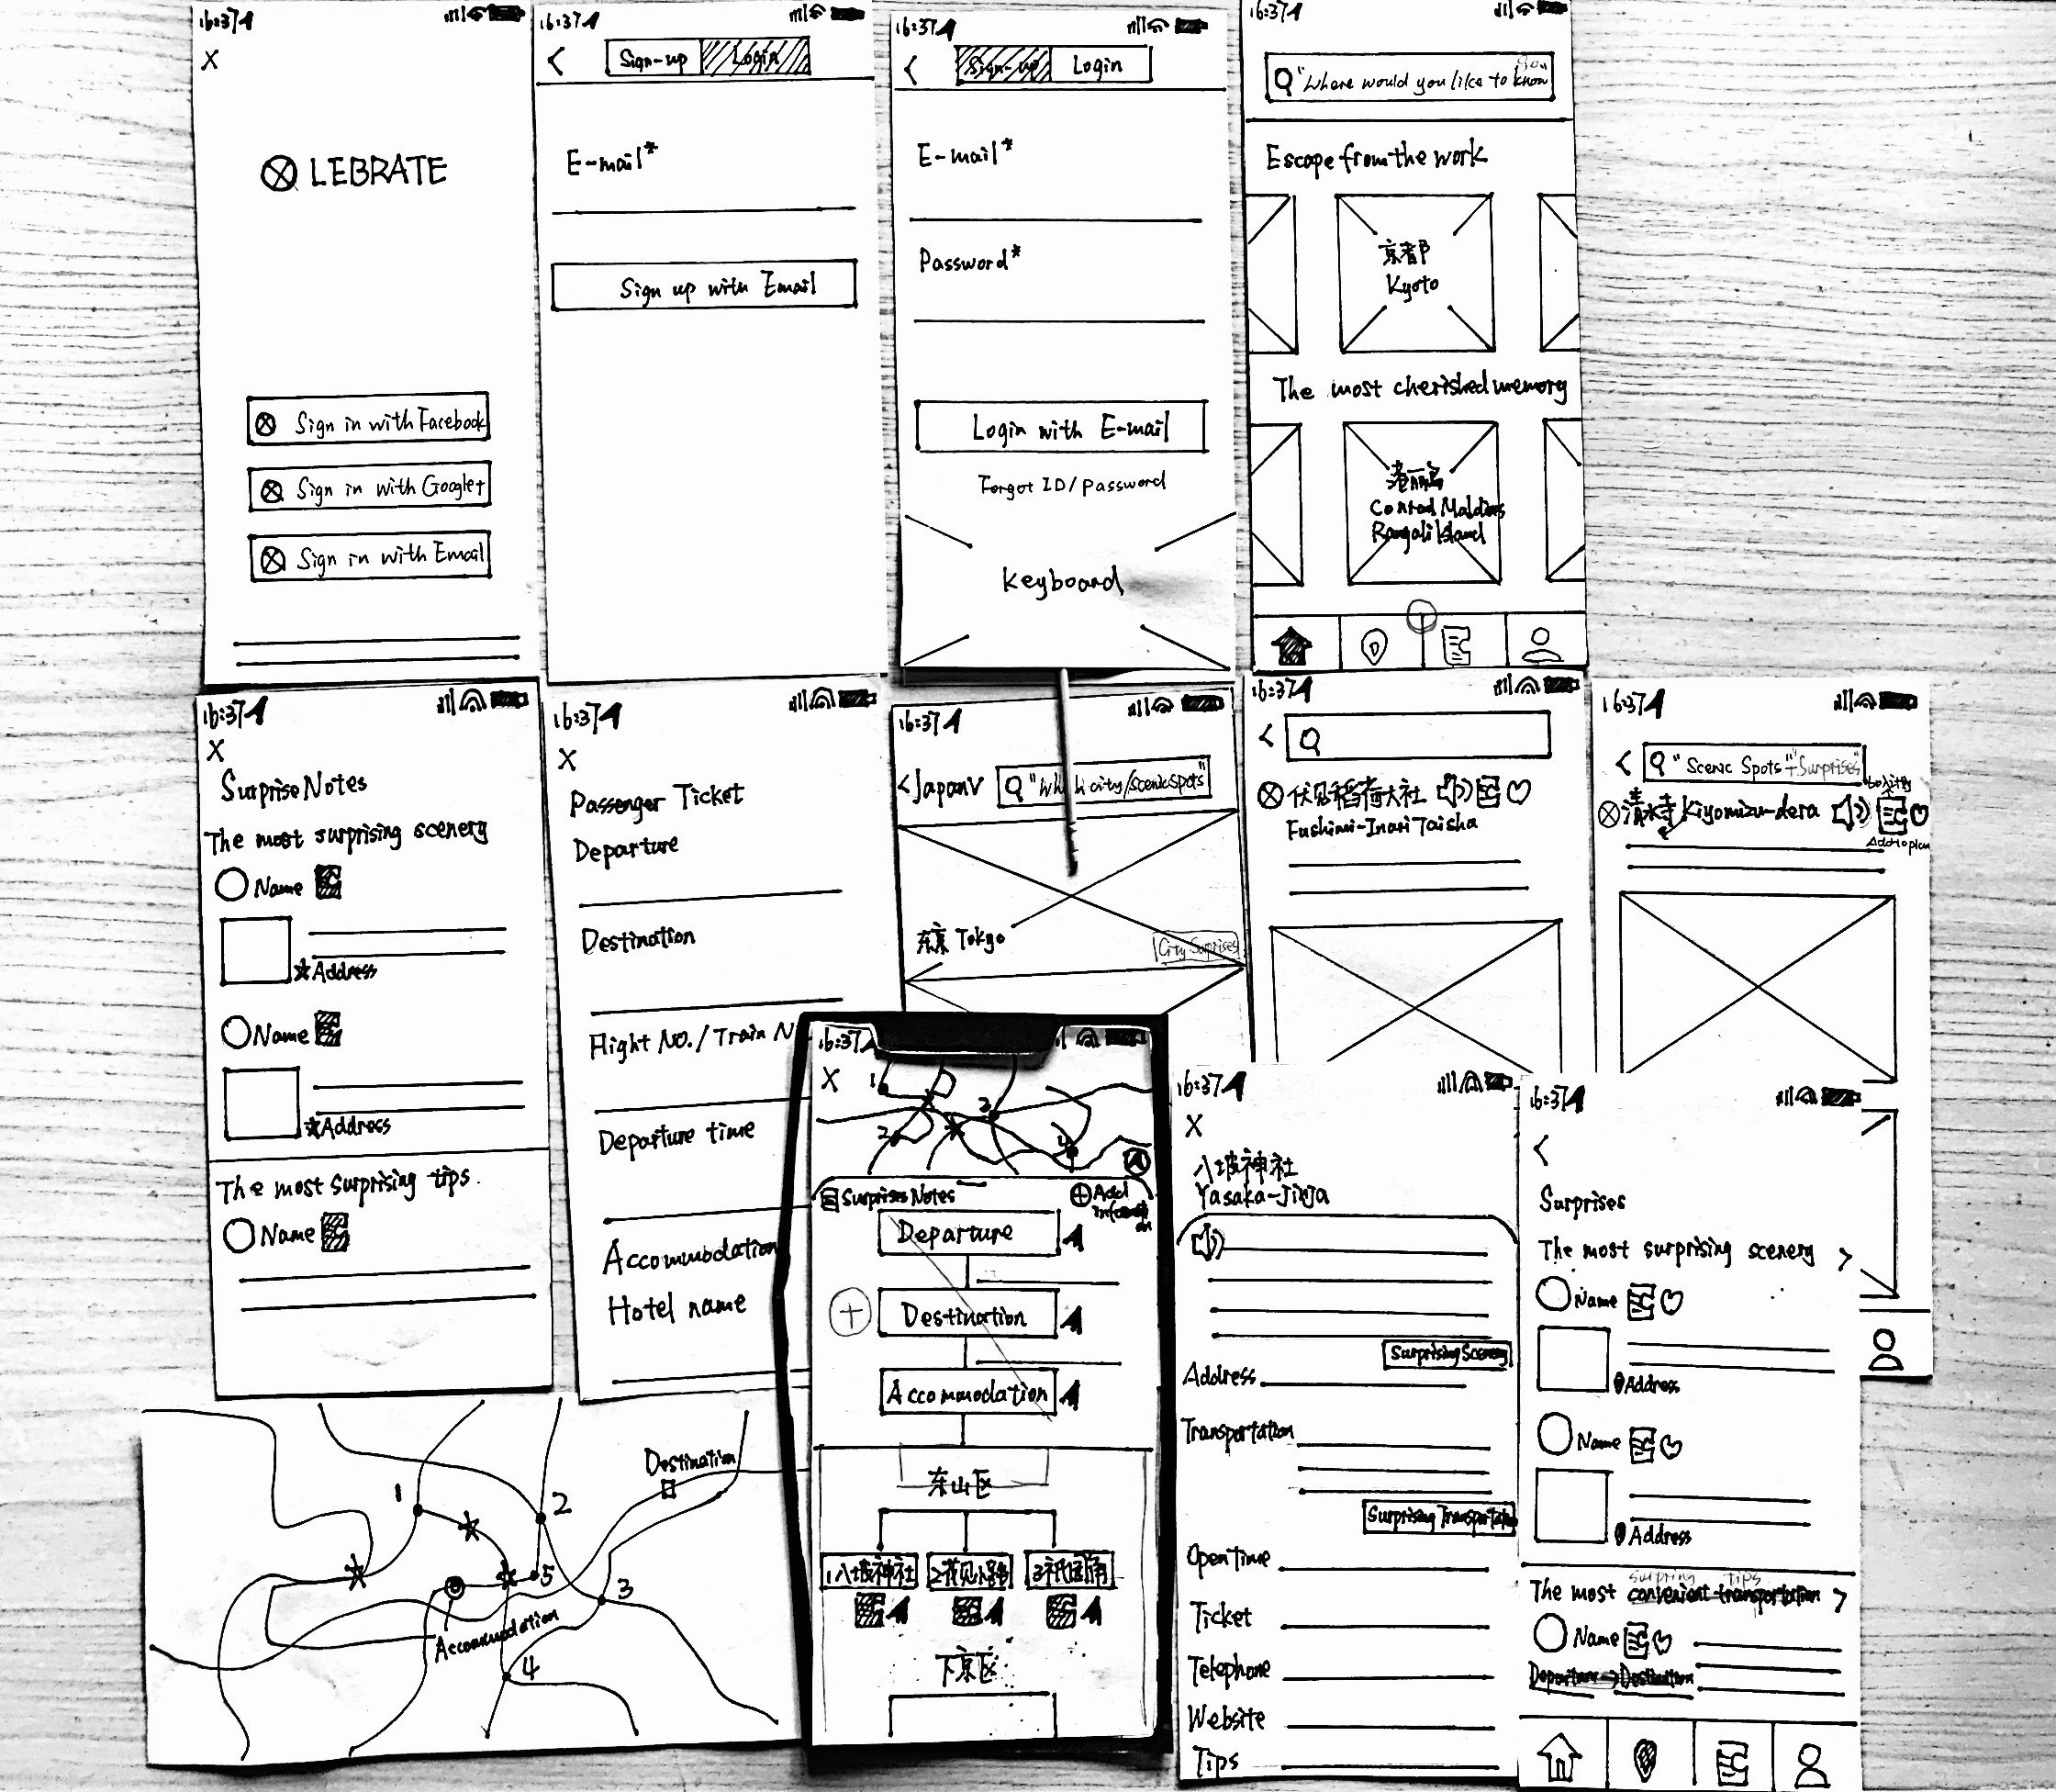 16:37
X
LEBRATE
Sign in with Facebook
Sign in with Google+
Sign in with Email
16:37
<
Sign-up
Login
E-mail*
Sign up with Email
16:37
<
Sign-up
Login
E-mail*
Password*
Login with E-mail
Forgot ID/password
keyboard
16:37
"Where would you like to know
Go"
Escape from the work
京都
Kyoto
The most cherished memory
Conrad Maldives
Rangali Island
16:37
X
Surprise Notes
The most surprising scenery
Name
Address
Name
Address
The most surprising tips.
Name
16:37
X
Passenger Ticket
Departure
Destination
Flight NO./Train N
Departure time
Accommodation
Hotel name
16:37
<Japan
city/scenic spots"
东京 Tokyo
City Surprises
16:37
<
伏见稻荷大社
Fushimi-Inari Taisha
16:37
<
"Scenic Spots"+Surprises
清水寺 Kiyomizu-dera
Add to plan
16:37
X
1
2
3
4
Surprises Notes
Add
Departure
Destination
Accommodation
东山区
1八坂神社
2花见小路
3
下京区
16:37
X
八坂神社
Yasaka-Jinja
Surprising Scenery
Address
Transportation
Surprising Transportation
Open Time
Ticket
Telephone
Website
Tips
16:37
<
Surprises
The most surprising scenery >
Name
Address
Name
Address
surpring tips
The most convenient transportation >
Name
Departure → Destination
Destination
1
2
5
3
Accommodation
4